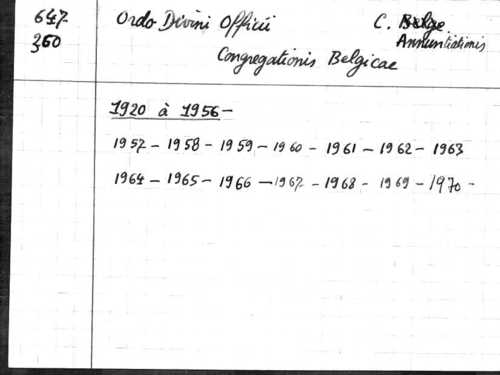 647 Ordo Divini Officii C. Belge
360 Annuntiationis
Congregationis Belgicae
1920 à 1956 -
1957 - 1958 - 1959 - 1960 - 1961 - 1962 - 1963
1964 - 1965 - 1966 - 1967 - 1968 - 1969 - 1970 -